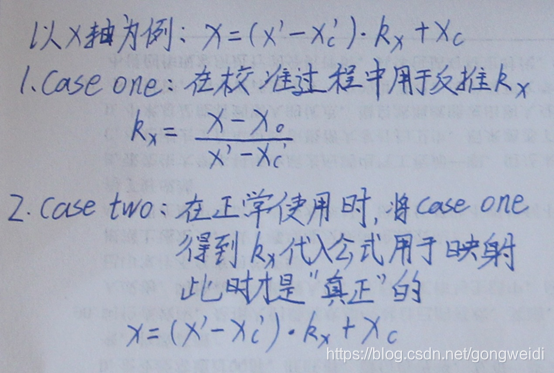 以X轴为例: x=(x'-xc')·kx+xc
1.case one: 在校准过程中用于反推kx
kx= x-xo / x'-xc'
2.case two: 在正学使用时,将case one
得到kx代入公式用于映射
此时才是“真正”的
x=(x'-xc')·kx+xc
https://blog.csdn.net/gongweidi